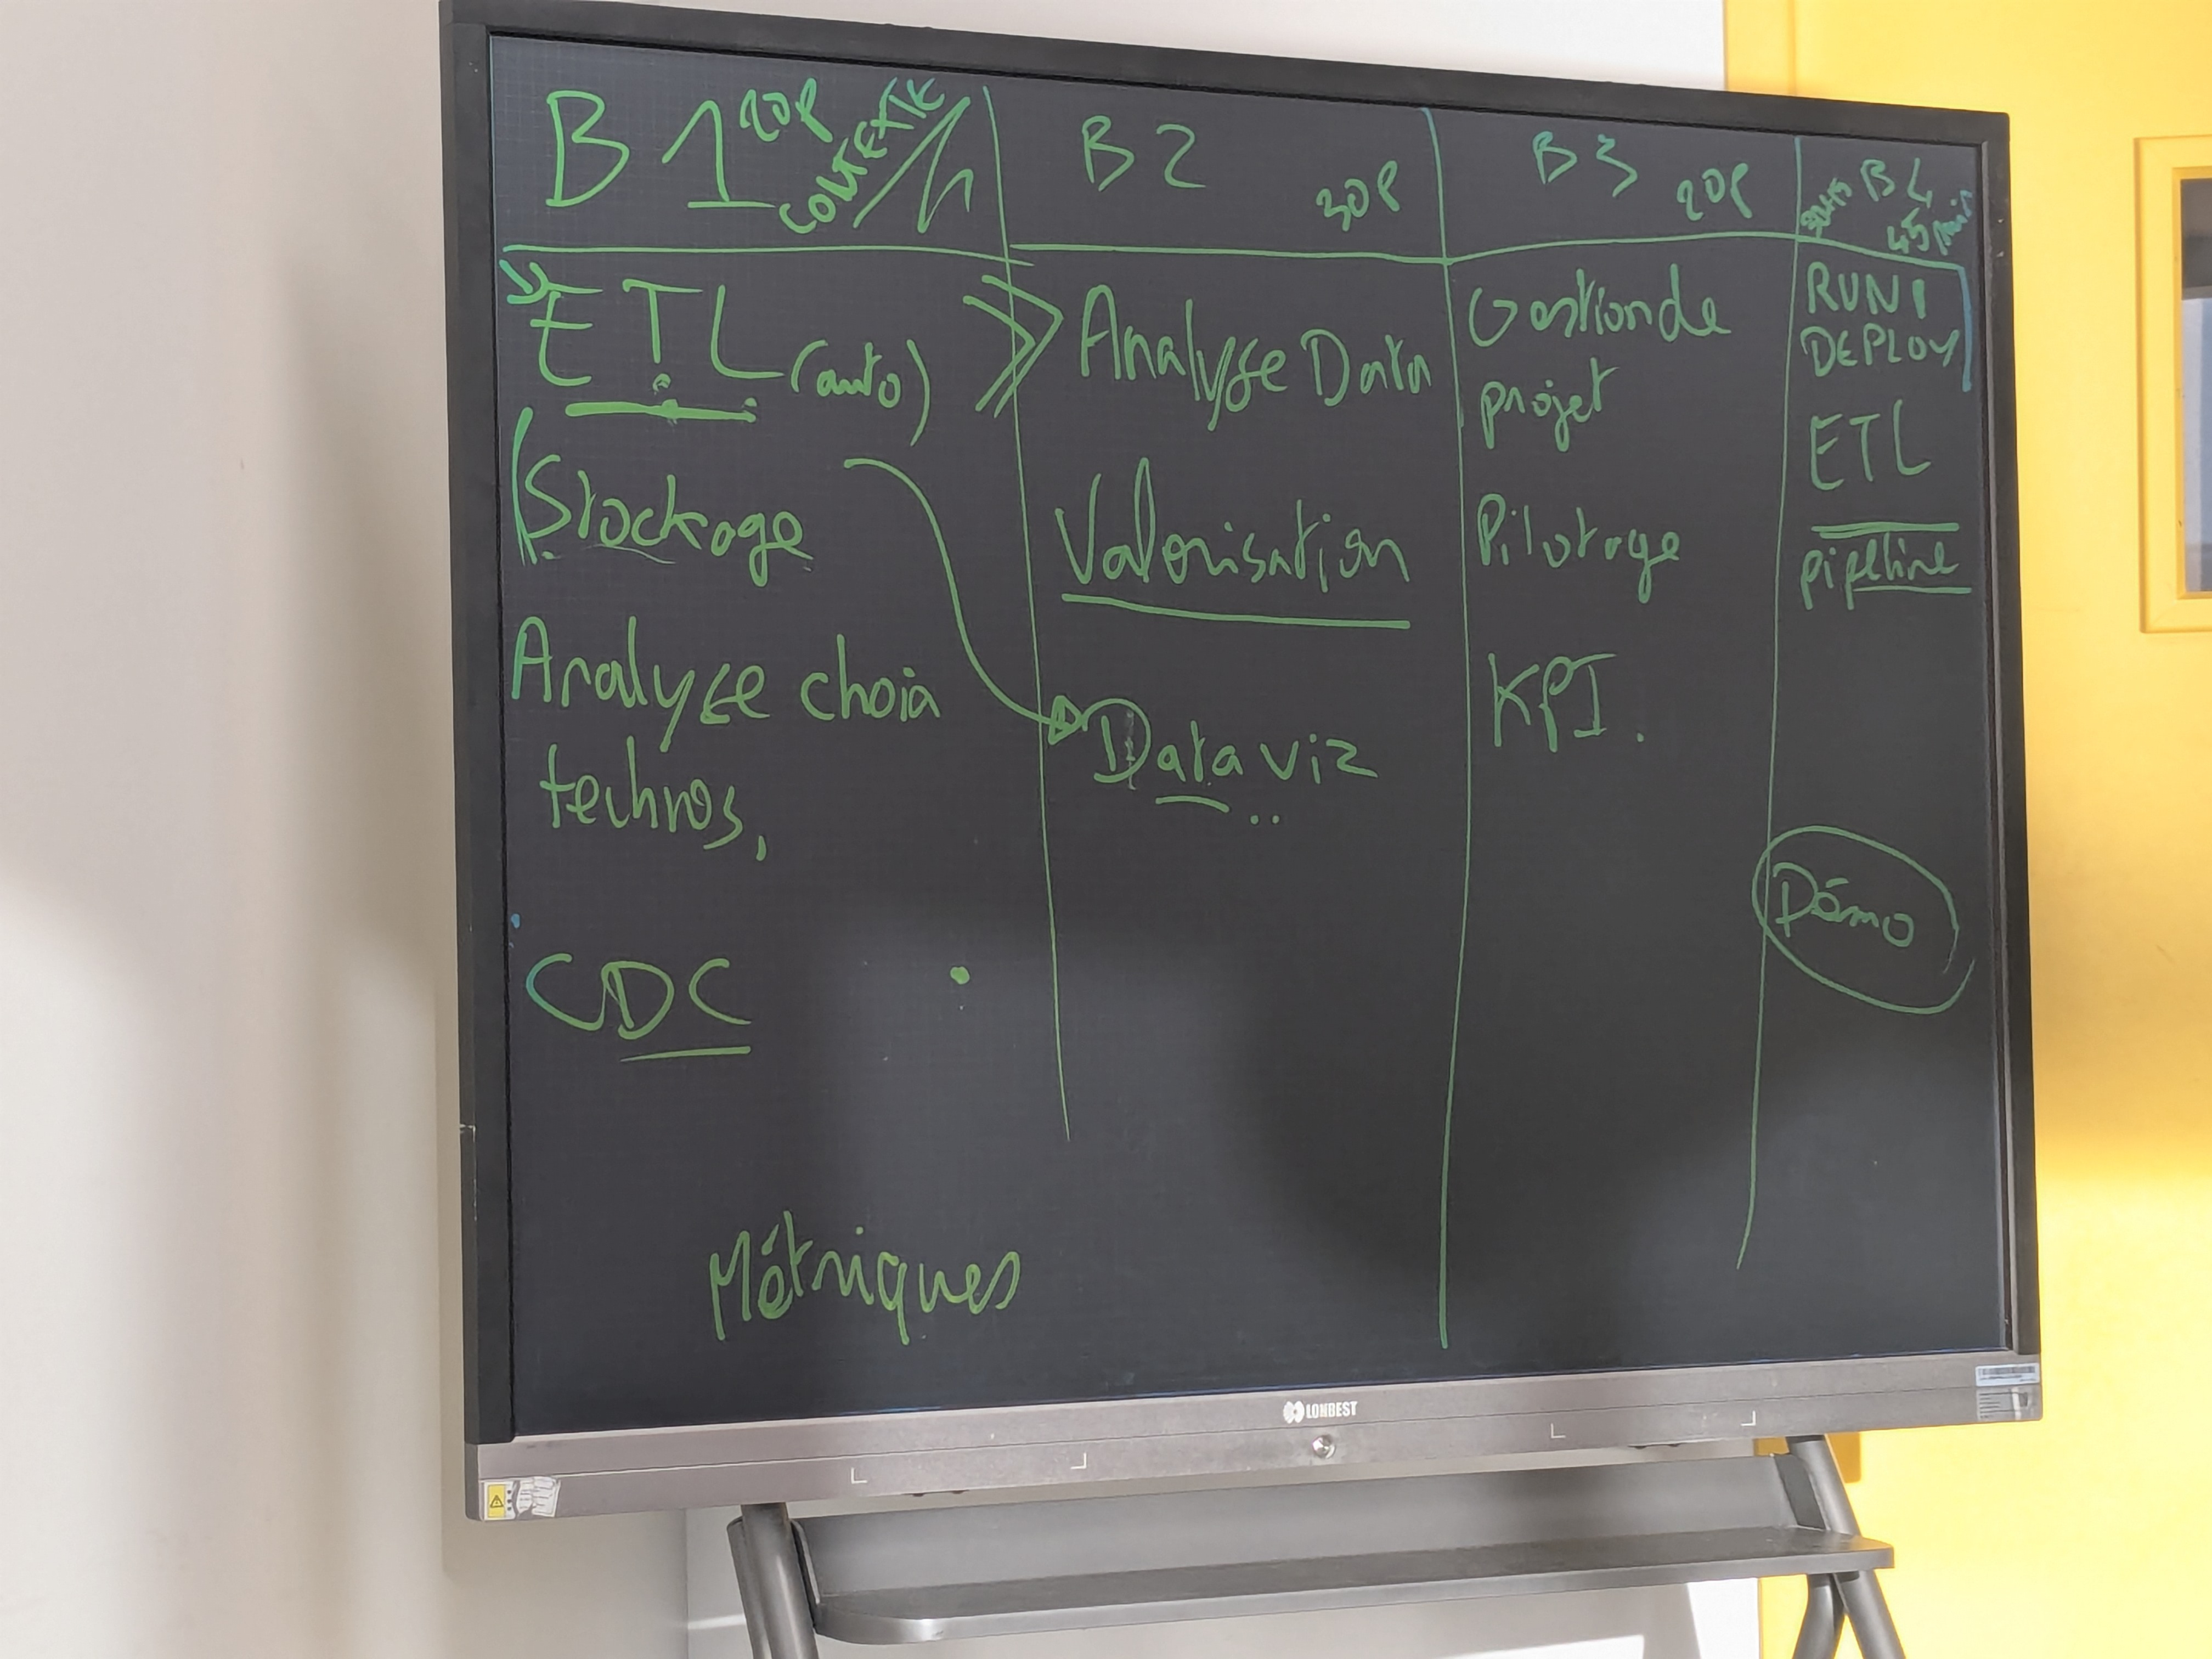 B1 20P CONTEXTE
ETL (auto)
Stockage
Analyse choix
technos,
CDC
Métriques
B2 30P
Analyse Data
Valorisation
Data viz
B3 20P
Gestion de
projet
Pilotage
KPI.
B4
45 min
RUN
DEPLOY
ETL
pipeline
Démo
LONBEST